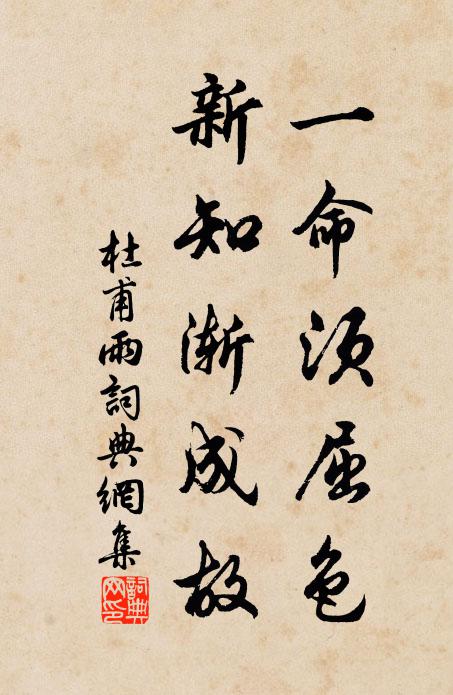 一命須屈色
新知漸成故
杜甫雨詞典網集
詞典網印